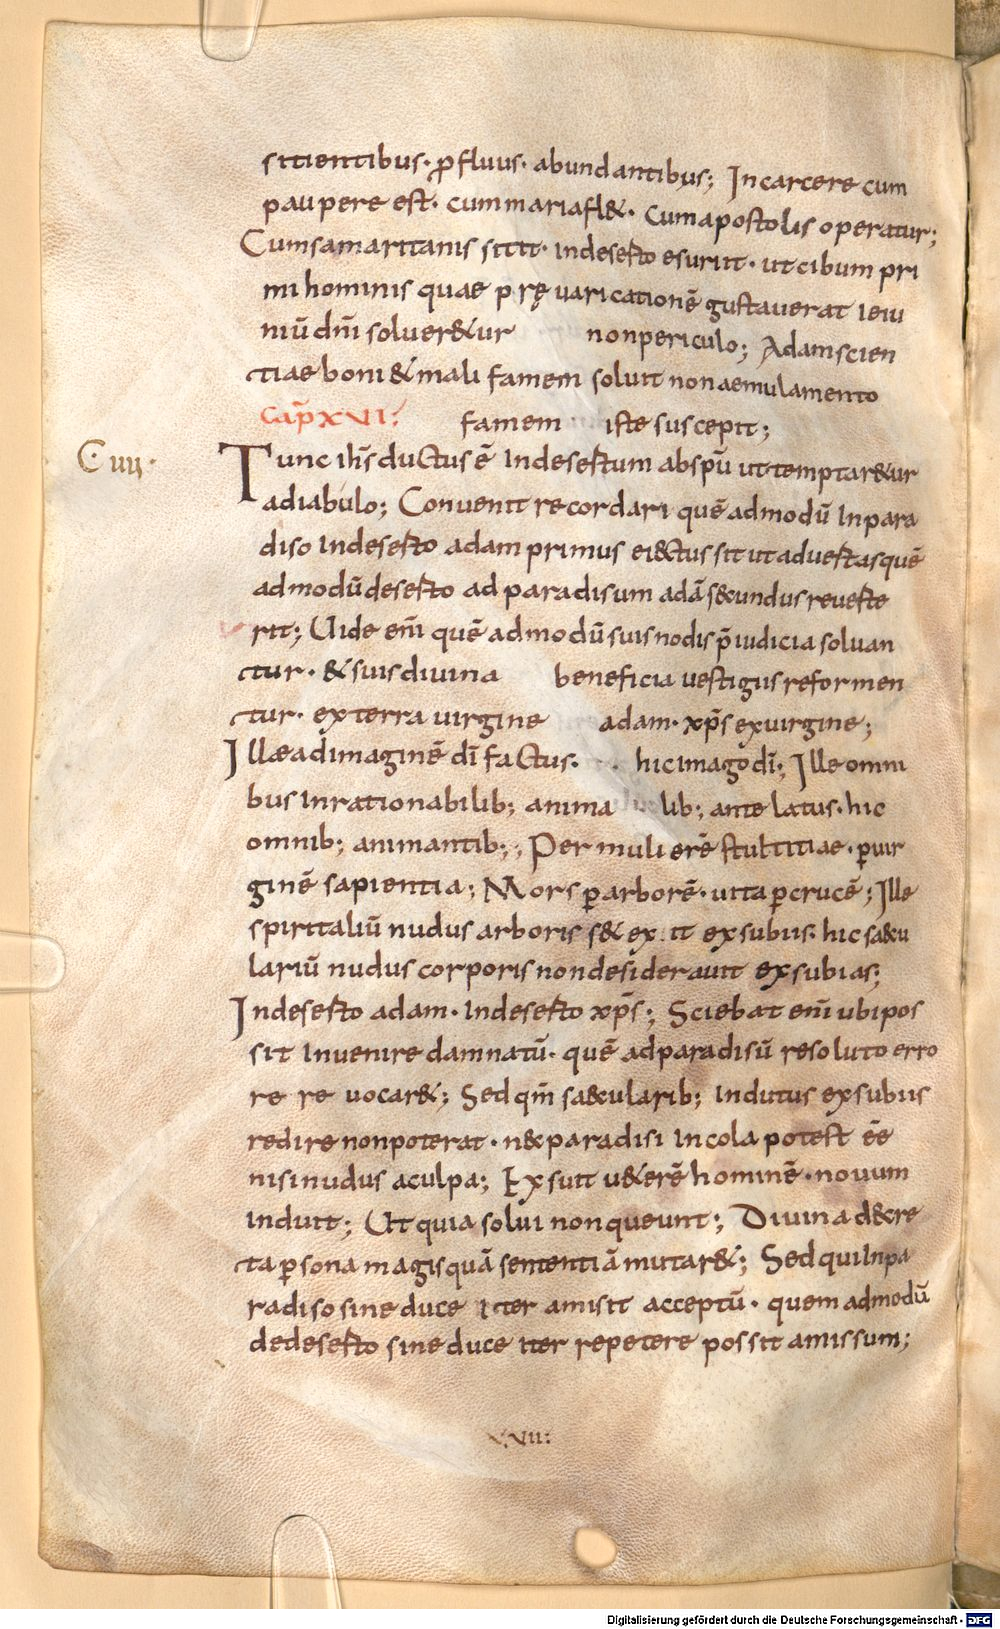 sitientibus· ꝓfluus· abundantibus; Incarcere cum
paupere est· cummariafl&· cumapostolis operatur;
Cumsamaritanis sitit· indeserto esuriit· ut cibum pri
mi hominis quae pręuaricationē gustauerat ieiu
niū dn̄i soluer&ur nonpericulo; Adam scien
tiae boni & mali famem soluit non aemulamento
Cap̄ XVI: famem iste suscepit;
C iiii·
Tunc ih̄s ductus ē Indesertum abspū ut temptar&ur
adiabulo; Conuenit recordari quē admodū Inpara
diso Indeserto adam primus ei&ctus sit ut aduertas quē
admodū deserto ad paradisum adā s&cundus reuerte
rit; Uide em̄ quē admodū suis nodis p̄iudicia soluan
tur· & suis diuina beneficia uestigiis reformen
tur· ex terra uirgine adam· xp̄s exuirgine;
Illae adimaginē dī factus· hic imago dī; Ille omni
bus Inrationabilib; anima lib; ante latus· hic
omnib; animantib;; Per mulierē stultitiae· ꝑuir
ginē sapientia; Mors ꝑarborē· uita ꝑcrucē; Ille
spiritaliū nudus arboris s& ex it exsubiis· hic sa&cu
lariū nudus corporis non desiderauit exsubias;
Indeserto adam· Indeserto xp̄s; Sciebat em̄ ubi pos
sit Inuenire damnatū· quē adparadisū resoluto erro
re re uocar&; Sed qm̄ sa&cularib; Indutus exsubiis
redire nonpoterat· n&cparadisi Incola potest ēe
nisi nudus aculpa; Exsuit u&erē hominē· nouum
induit; Ut quia solui non queunt; Diuina d&cre
ta ꝑsona magis quā sententiā mutar&; Sed qui Inpa
radiso sine duce iter amisit acceptū· quem admodū
dedeserto sine duce iter repetere possit amissum;
XVII:
Digitalisierung gefördert durch die Deutsche Forschungsgemeinschaft - DFG